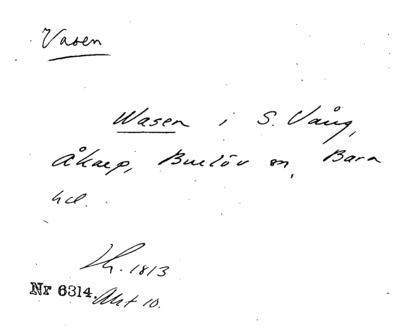 Vasen
Wasen i S. Vång,
Åkarp, Burlöv sn, Bara
hd.
Lh. 1813
Nr 6314. Akt 10.